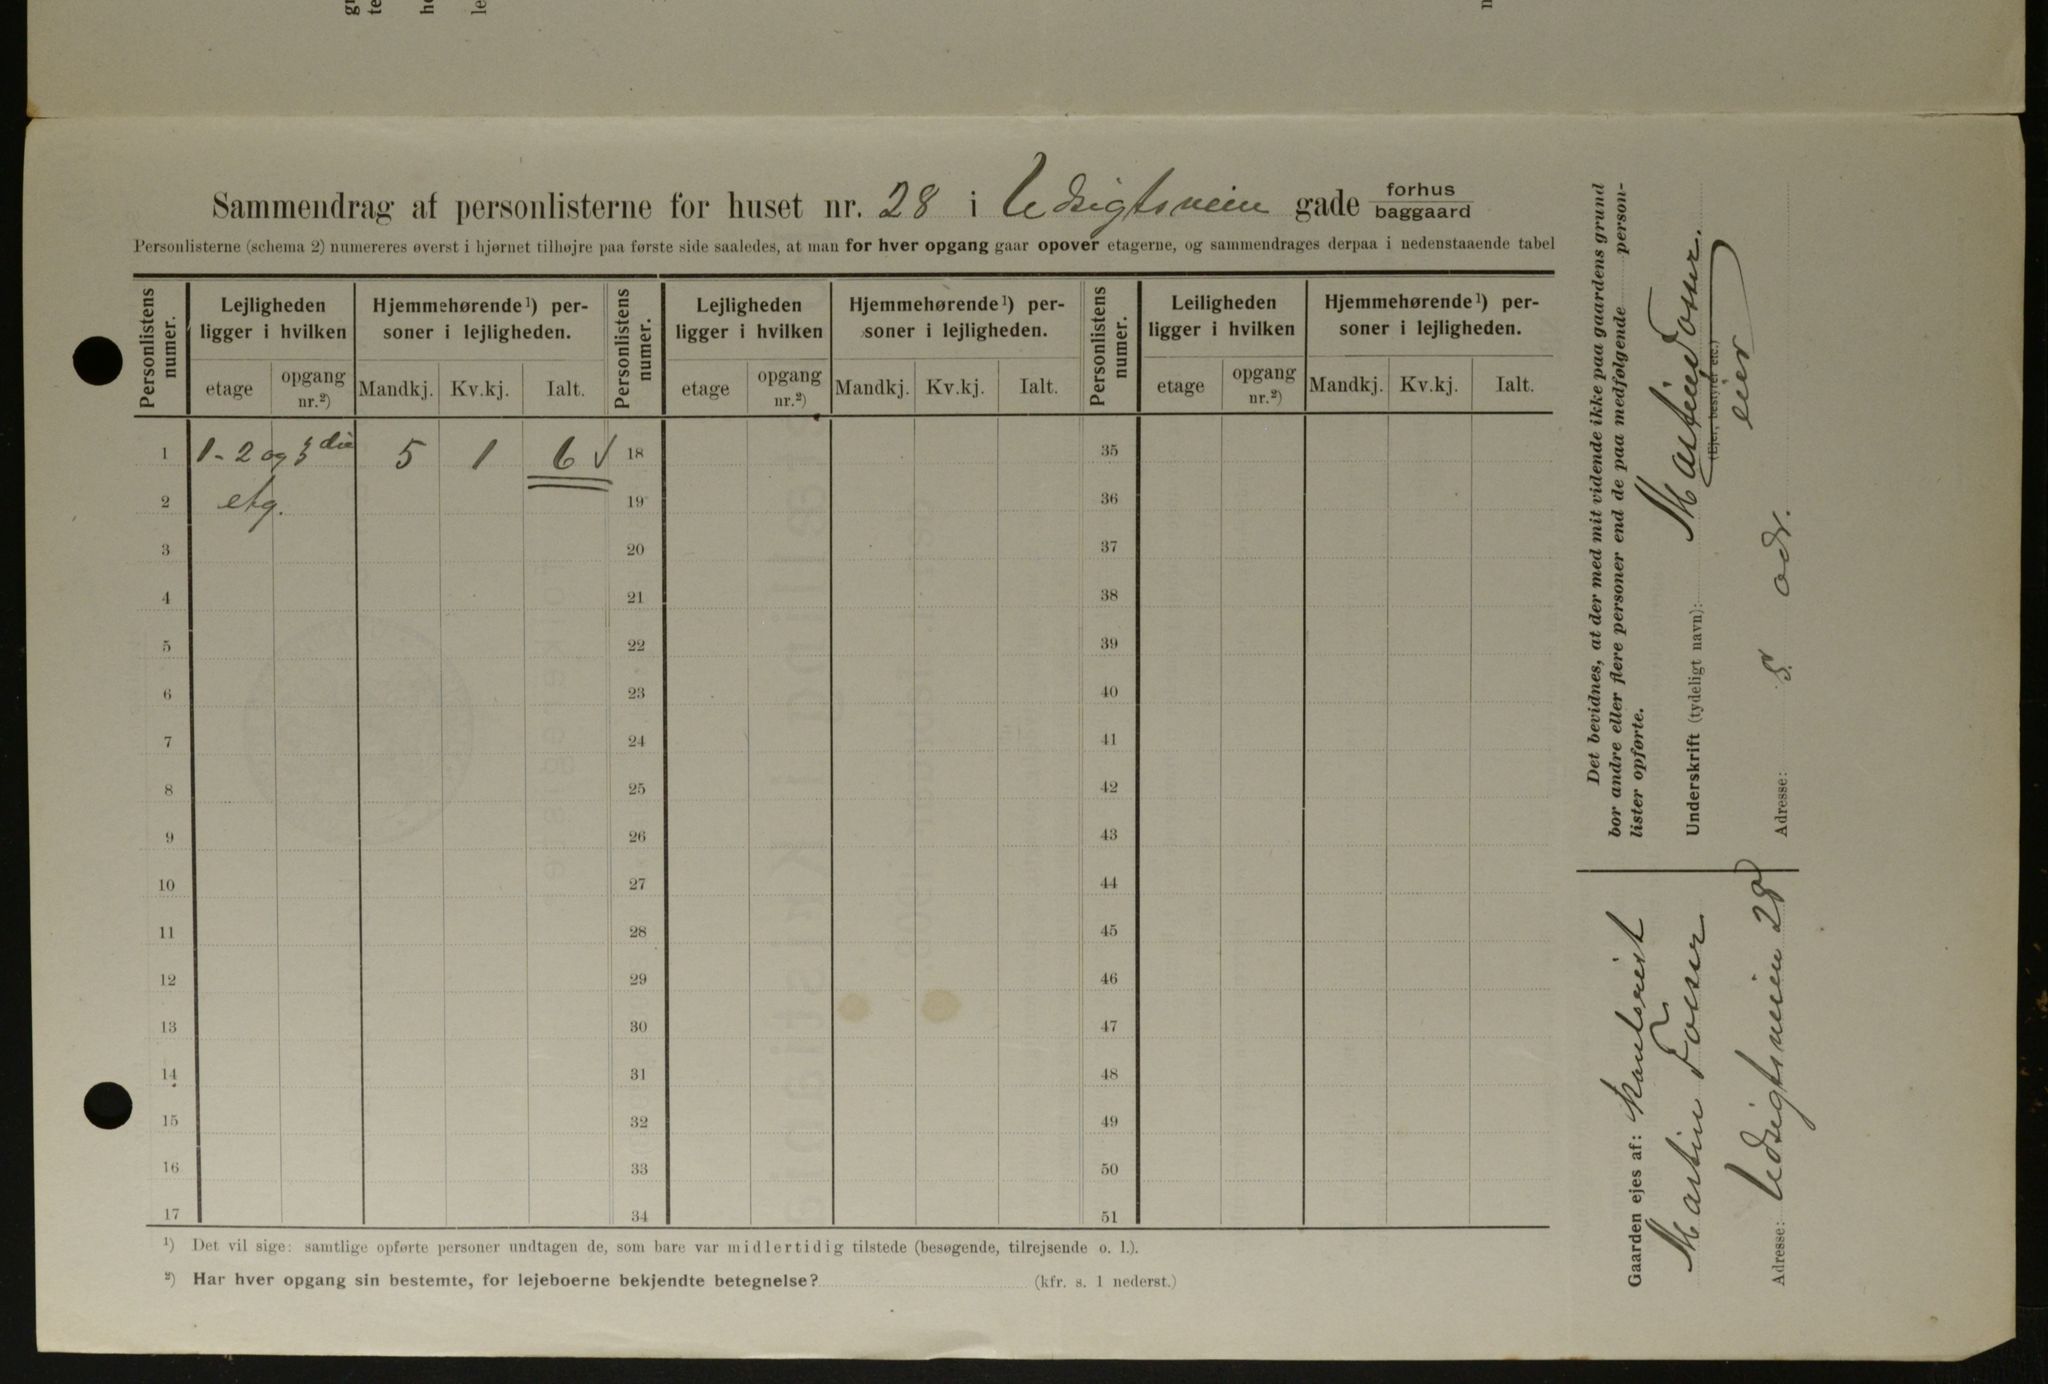 Sammendrag af personlisterne for huset nr. 28 i Udsigtsveien gade forhus baggaard
Personlisterne (schema 2) numereres øverst i hjørnet tilhøjre paa første side saaledes, at man for hver opgang gaar opover etagerne, og sammendrages derpaa i nedenstaaende tabel
Personlistens numer.
Lejligheden ligger i hvilken
Hjemmehørende ¹) personer i lejligheden.
Personlistens numer.
Lejligheden ligger i hvilken
Hjemmehørende ¹) personer i lejligheden.
Personlistens numer.
Leiligheden ligger i hvilken
Hjemmehørende ¹) personer i lejligheden.
etage opgang nr.²) Mandkj. Kv.kj. Ialt. etage opgang nr.²) Mandkj. Kv.kj. Ialt. etage opgang nr.²) Mandkj. Kv.kj. Ialt.
1 1-2 og 3die 5 1 6 √ 18 35
2 etg. 19 36
3 20 37
4 21 38
5 22 39
6 23 40
7 24 41
8 25 42
9 26 43
10 27 44
11 28 45
12 29 46
13 30 47
14 31 48
15 32 49
16 33 50
17 34 51
¹) Det vil sige: samtlige opførte personer undtagen de, som bare var midlertidig tilstede (besøgende, tilrejsende o. l.).
²) Har hver opgang sin bestemte, for lejeboerne bekjendte betegnelse? (kfr. s. 1 nederst.)
Det bevidnes, at der med mit vidende ikke paa gaardens grund
bor andre eller flere personer end de paa medfølgende person-
lister opførte.
Underskrift (tydeligt navn):
Martin
(Ejer, bestyrer etc.)
eier
Adresse:
Gaarden ejes af:
Martin
Adresse: Udsigtsveien 28